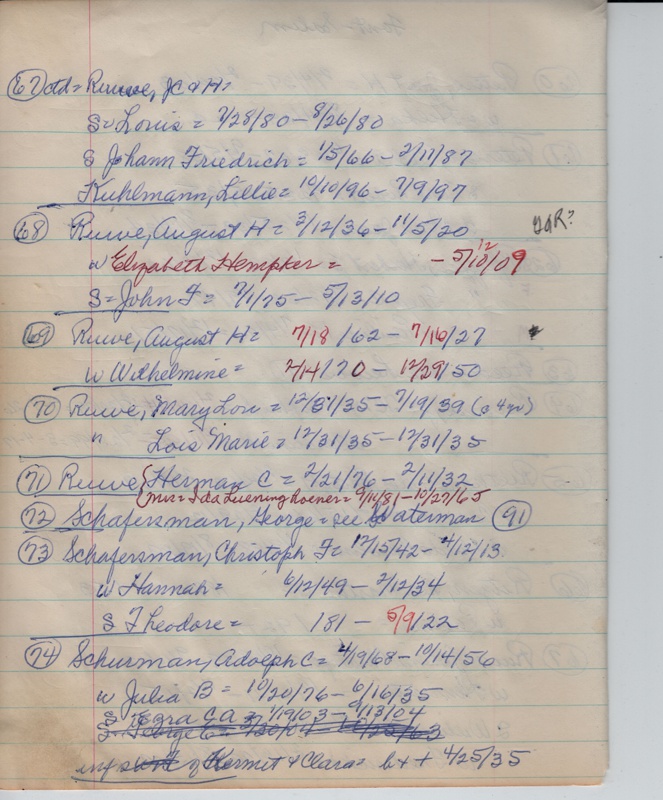 67 ctd = Ruwe, JC & H =
S = Louis = 7/28/80 - 8/26/80
S Johann Friedrich = 1/5/66 - 2/11/87
Kuhlmann, Lillie = 10/10/96 - 7/9/97
68 Ruwe, August H = 3/12/36 - 11/5/20 GAR?
w Elizabeth Hempker = - 5/10/09 12
S = John F = 7/1/75 - 5/13/10
69 Ruwe, August H = 7/18/62 - 7/16/27
w Wilhelmine = 2/14/70 - 12/29/50
70 Ruwe, Mary Lou = 12/31/35 - 7/19/39 (a 4yr)
" Lois Marie = 12/31/35 - 12/31/35
71 Ruwe { Herman C = 2/21/76 - 2/11/32
Mrs = Ida Luening Roener = 9/10/81 - 10/27/65
72 Schafersman, George = see Waterman 91
73 Schafersman, Christoph F = 12/15/42 - 4/12/13
w Hannah = 6/12/49 - 2/12/34
S Theodore = 181 - 5/9/22
74 Schurman, Adolph C = 4/19/68 - 10/14/56
w Julia B = 10/20/76 - 6/16/35
S Ezra CA = 1/19/03 - 9/13/04
S George
inf of Kermit & Clara = b++ 4/25/35